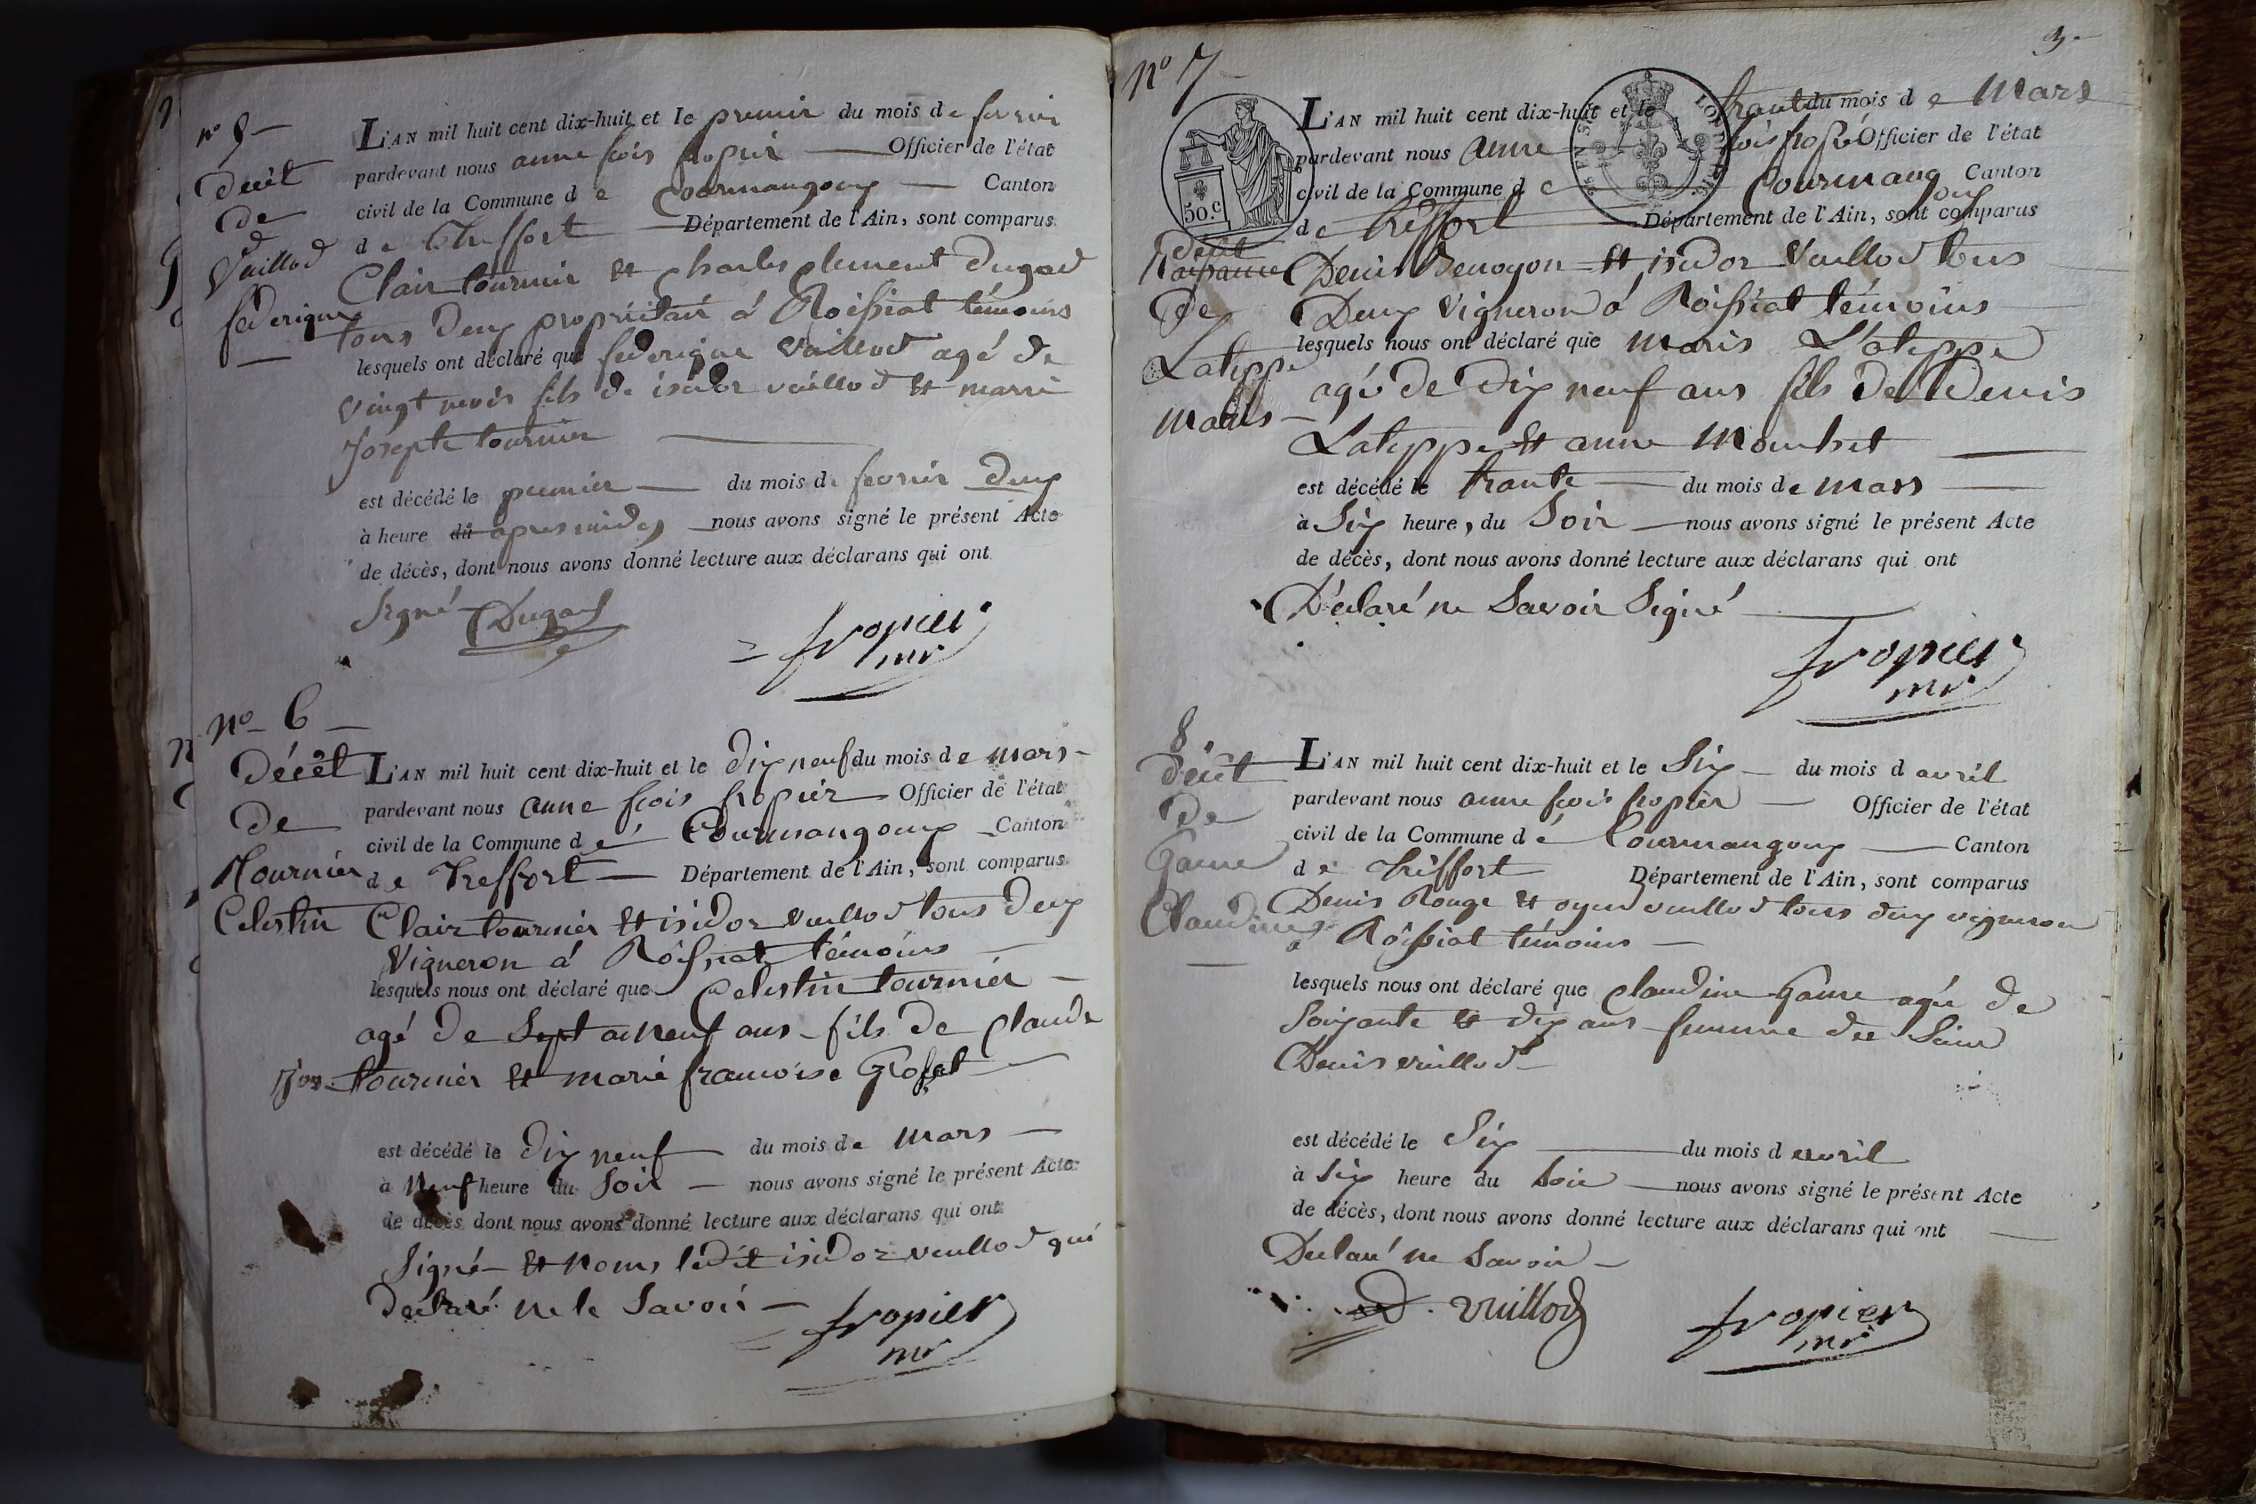 n° 5
décèt
de
Vuillod
féderique
L'AN mil huit cent dix-huit et le premier du mois de fevrier
pardevant nous anne fcois fropier Officier de l'état
civil de la Commune de Courmangoux Canton
de Treffort Département de l'Ain, sont comparus
Clair tournier et charles clement dugad
tous deux propriétair á Roissiat témoins
lesquels ont déclaré que féderique vuillod agé de
vingt mois fils de isidor vuillod et marri
Josepte tournier
est décédé le premier du mois de fevrier deux
à heure du apres midy nous avons signé le présent Acte
de décès, dont nous avons donné lecture aux déclarans qui ont
Signé Dugad
fropier
mr
n° 6
décèt
de
Tournier
Celestin
L'AN mil huit cent dix-huit et le dix neuf du mois de mars
pardevant nous anne fcois fropier Officier de l'état
civil de la Commune de Courmangoux Canton
de Treffort Département de l'Ain, sont comparus
Clair tournier et isidor vuillod tous deux
Vigneron á Roissiat témoins
lesquels nous ont déclaré que Celestin tournier
agé de Sept a neuf ans fils de claude
tournier et marie francoise
est décédé le dix neuf du mois de mars
à neuf heure du Soir nous avons signé le présent Acte
de décès dont nous avons donné lecture aux déclarans qui ont
Signé et nous ledit isidor vuillod qui
declaré ne le Savoir
fropier
mr
n° 7
50.c
décèt
Naissance
de
Lateppe
maris
L'AN mil huit cent dix-huit et le trante du mois de Mars
pardevant nous anne fcois fropié Officier de l'état
civil de la Commune de Courmangoux Canton
de Treffort Département de l'Ain, sont comparus
Denis Benoyon et isidor Vuillod tous
Deux Vigneron á Roissiat témoins
lesquels nous ont déclaré que maris Lateppe
agé de dix neuf ans fils de Denis
Lateppe et anne
est décédé le trante du mois de mars
à Six heure, du Soir nous avons signé le présent Acte
de décès, dont nous avons donné lecture aux déclarans qui ont
Déclaré ne Savoir Signé
fropier
mr
8
décèt
de
Game
Claudine
L'AN mil huit cent dix-huit et le Six du mois d avril
pardevant nous anne fcois fropier Officier de l'état
civil de la Commune de Courmangoux Canton
de Treffort Département de l'Ain, sont comparus
Denis Rouge et oyen vuillod tous deux vigneron
a Roissiat témoins
lesquels nous ont déclaré que claudine Game agée de
Soixante et dix ans femme de Sieur
Denis vuillod
est décédé le Six du mois d avril
à Six heure du Soir nous avons signé le présent Acte
de décès, dont nous avons donné lecture aux déclarans qui ont
Déclaré ne Savoir
D. vuillod
fropier
mr